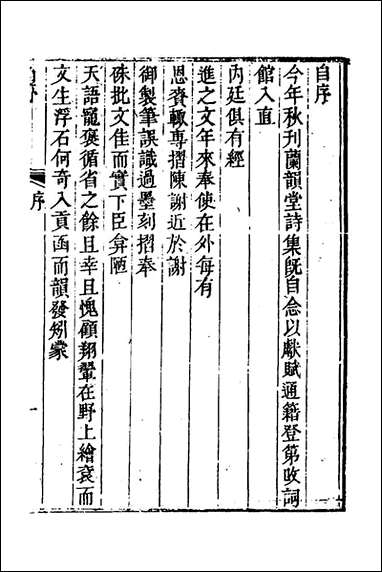 自序
今年秋刊蘭韻堂詩集旣自念以獻賦通籍登第改詞
館入直
內廷俱有經
進之文年來奉使在外每有
恩賚輒專摺陳謝近於謝
御製筆誤識過墨刻摺奉
硃批文佳而實下臣弇陋
天語寵褒循省之餘且幸且愧顧翔翬在野上繪袞而
文生浮石何奇入貢函而韻發矧蒙
序
一